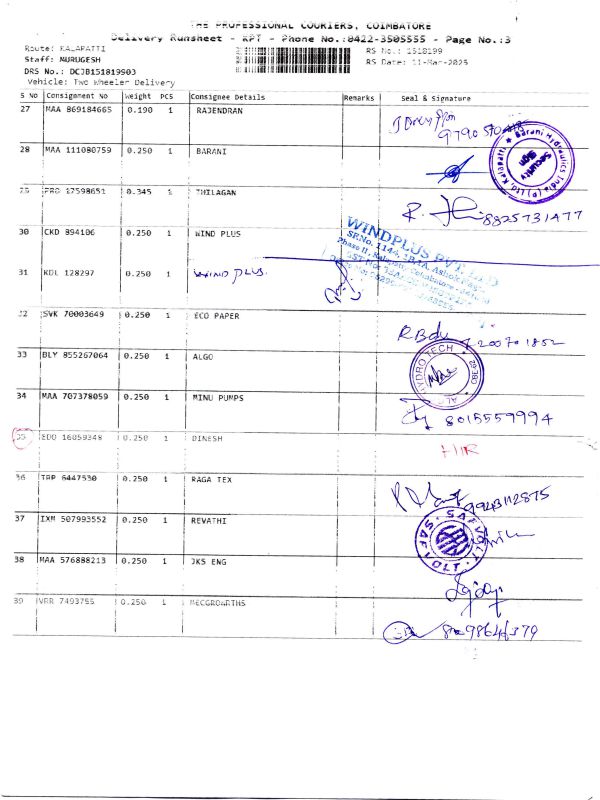 THE PROFESSIONAL COURIERS, COIMBATORE
Delivery Runsheet - KPT - Phone No.:0422-3505555 - Page No.:3
Route: KALAPATTI
RS No.: 1518199
Staff: MURUGESH
RS Date: 11-Mar-2025
DRS No.: DCJB151819903
Vehicle: Two Wheeler Delivery
S No Consignment No Weight PCS Consignee Details Remarks Seal & Signature
27 MAA 869184665 0.190 1 RAJENDRAN
28 MAA 111080759 0.250 1 BARANI
Barani Hydraulics India (P) Ltd Kalapatti
Security Sign
29 PRO 17598651 0.345 1 THILAGAN
8825731477
30 CKD 894106 0.250 1 WIND PLUS
WINDPLUS PVT. LTD
31 KDL 128297 0.250 1 WIND PLUS.
32 SVK 70003649 0.250 1 ECO PAPER
33 BLY 855267064 0.250 1 ALGO
HYDRO TECH
34 MAA 707378059 0.250 1 MINU PUMPS
8015559994
35 EDO 16059348 0.250 1 DINESH
36 TRP 6447530 0.250 1 RAGA TEX
9943112875
37 IXM 507993552 0.250 1 REVATHI
38 MAA 576888213 0.250 1 JKS ENG
39 VRR 7493755 0.250 1 MECGROARTHS